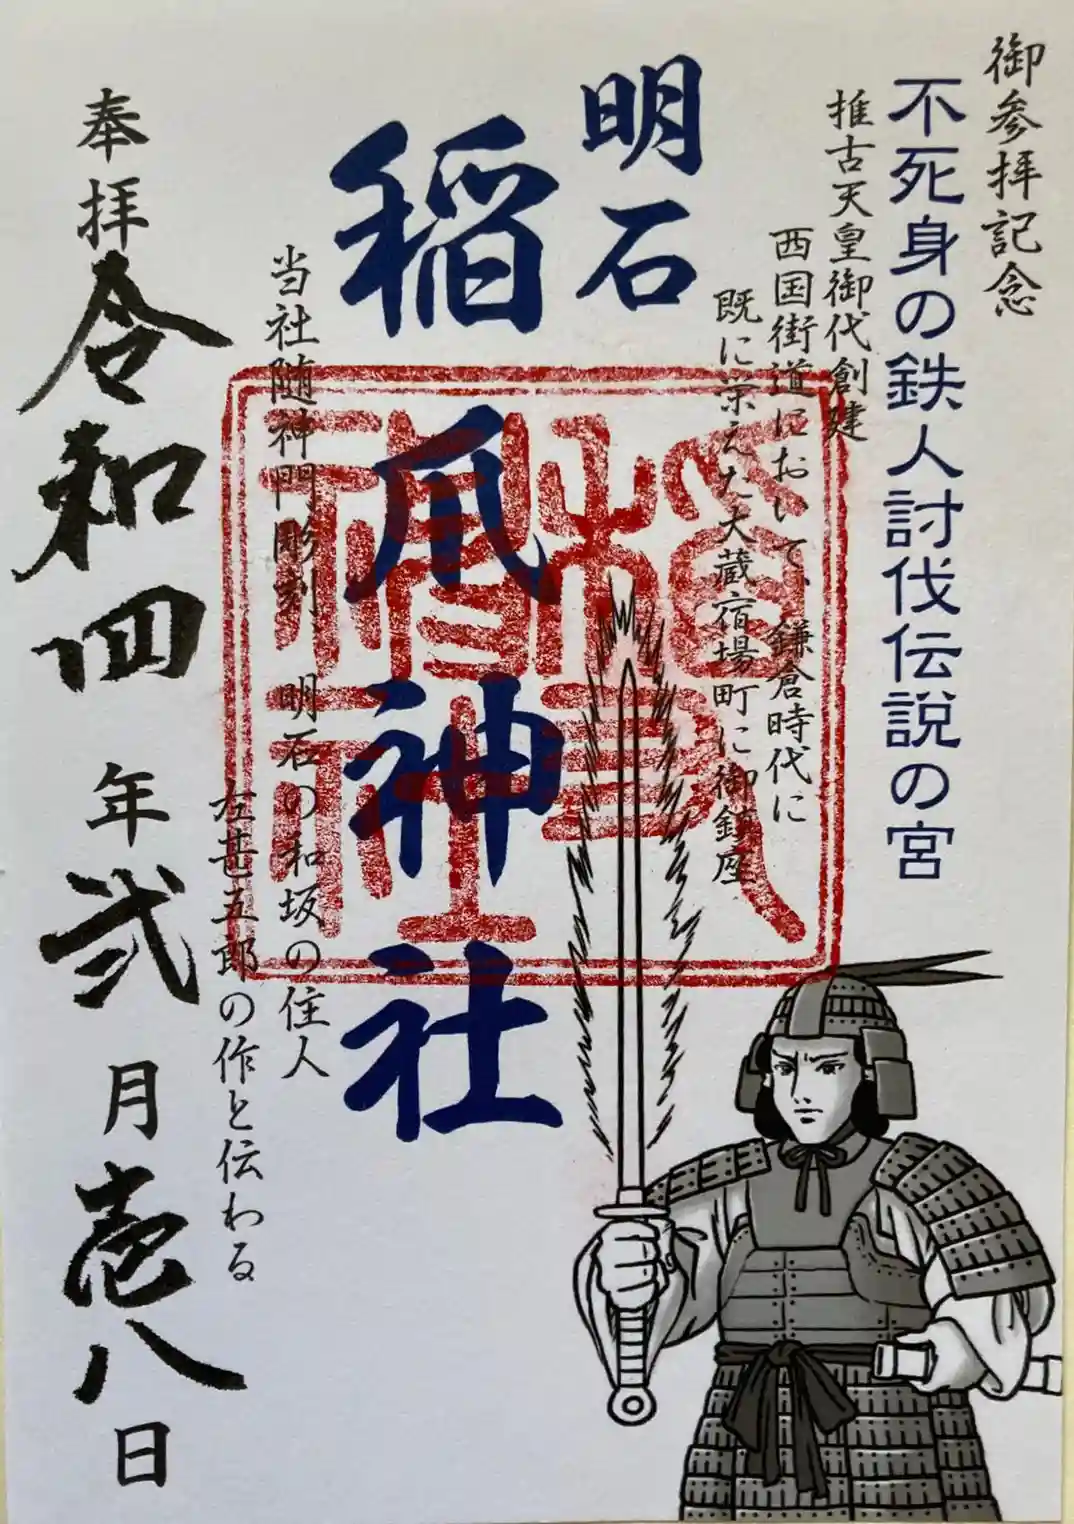 御参拝記念
不死身の鉄人討伐伝説の宮
推古天皇御代創建
西国街道において、鎌倉時代に
既に栄えた大蔵宿場町に御鎮座
明石
稲爪神社
当社随神門彫刻、明石の和坂の住人
左甚五郎の作と伝わる
奉拝 令和四年弐月壱八日